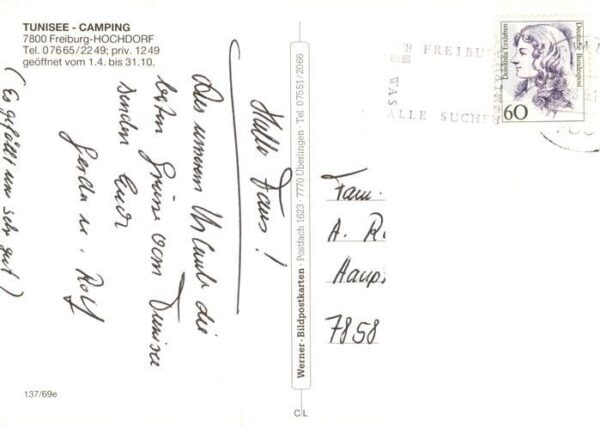 TUNISEE - CAMPING
7800 Freiburg-HOCHDORF
Tel. 07665/2249; priv. 1249
geöffnet vom 1.4. bis 31.10.
Hallo Fans!
Aus unserem Urlaub die
besten Grüsse vom Tunisee
senden Euch
Gerda u. Rolf
(Es gefällt uns sehr gut)
137/69e
Werner-Bildpostkarten · Postfach 1623 · 7770 Überlingen · Tel. 07551/2066
CL
FREIBU
WAS
ALLE SUCHEN
Dorothea Erxleben
Deutsche Bundespost
60
Fam.
A. R
Haup
7858